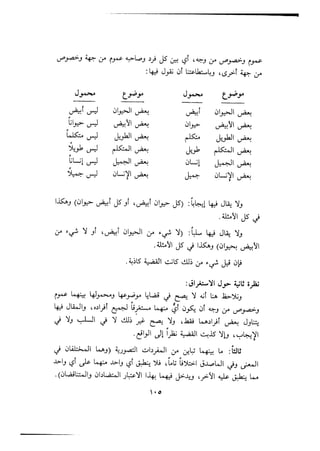 عموم وخصوص من وجه، أي بين كل فرد وصاحبه عموم من جهة وخصوص
من جهة أخرى، وباستطاعتنا أن نقول فيها:
موضوع محمول موضوع محمول
بعض الحيوان أبيض بعض الحيوان ليس أبيض
بعض الأبيض حيوان بعض الأبيض ليس حيواناً
بعض الطويل متكلم بعض الطويل ليس متكلماً
بعض المتكلم طويل بعض المتكلم ليس طويلاً
بعض الجميل إنسان بعض الجميل ليس إنساناً
بعض الإنسان جميل بعض الإنسان ليس جميلاً
ولا يقال فيها إيجاباً: (كل حيوان أبيض، أو كل أبيض حيوان) وهكذا
في كل الأمثلة.
ولا يقال فيها سلباً: (لا شيء من الحيوان أبيض، أو لا شيء من
الأبيض بحيوان) وهكذا في كل الأمثلة.
فإن قيل شيء من ذلك كانت القضية كاذبة.
نظرة ثانية حول الاستغراق:
ونلاحظ هنا أنه لا يصح في قضايا موضوعها ومحمولها بينهما عموم
وخصوص من وجه أن يكون أي منهما مستغرقاً لجميع أفراده، والمقال فيها
يتناول بعض أفرادهما فقط، ولا يصح غير ذلك لا في السلب ولا في
الإيجاب، وإلا كذبت القضية نظراً إلى الواقع.
ثالثاً: ما بينهما تباين من المفردات التصورية (وهما المختلفان في
المعنى وفي الماصدق اختلافاً تاماً، فلا ينطبق أي واحد منهما على أي واحد
مما ينطبق عليه الآخر، ويدخل فيهما بهذا الاعتبار المتضادان والمتناقضان).
١٠٥